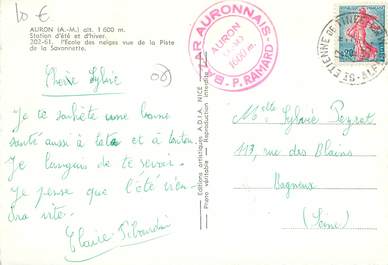 10 €
AURON (A.-M.) alt. 1 600 m.
Station d'été et d'hiver.
302-61. l'Ecole des neiges vue de la Piste
de la Savonnette.
(06)
Chère Sylvie
Je te souhaite une bonne
santé aussi à tata et à tonton.
Je languis de te revoir.
Je pense que l'été vien-
dra vite.
Claire
Editions artistiques A.D.I.A. NICE
Piano véritable - Reproduction interdite
BAZAR AURONNAIS
AURON
1600 m.
P. RAMARD
ST ETIENNE DE TINEE
Melle Sylvie Peyret
113, rue des Blains
Bagneux
(Seine)